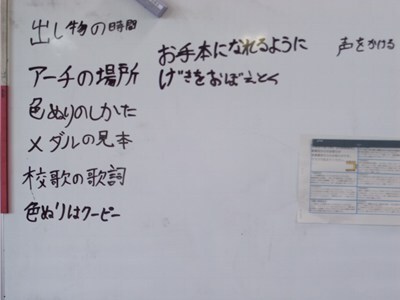 出し物の時間
アーチの場所
色ぬりのしかた
メダルの見本
校歌の歌詞
色ぬりはクーピー
お手本になれるように
げきをおぼえとく
声をかける